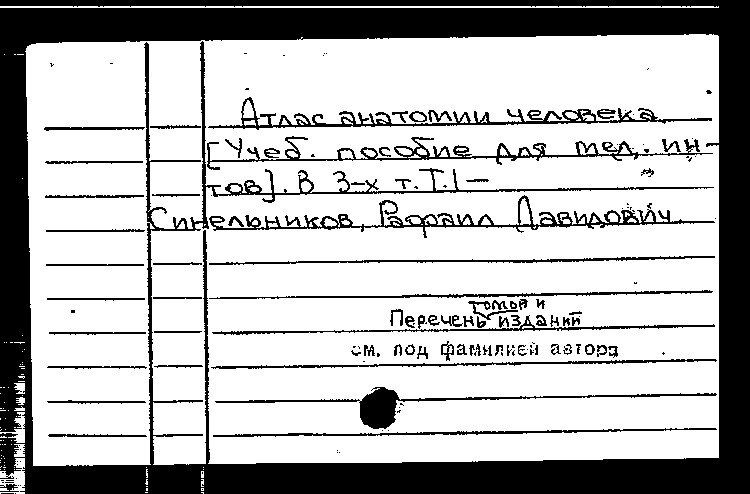 Атлас анатомии человека.
[Учеб. пособие для мед. ин-
тов]. В 3-х т. Т. 1 –
Синельников, Рафаил Давидович.
томов и
Перечень изданий
см. под фамилией автора